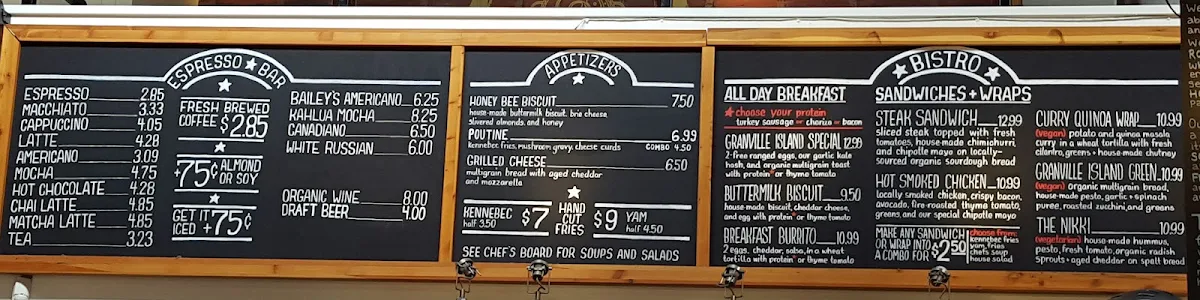 ESPRESSO ★ BAR
ESPRESSO 2.85
MACCHIATO 3.33
CAPPUCCINO 4.05
LATTE 4.28
AMERICANO 3.09
MOCHA 4.75
HOT CHOCOLATE 4.28
CHAI LATTE 4.85
MATCHA LATTE 4.85
TEA 3.23
FRESH BREWED
COFFEE $2.85
+75¢ ALMOND
OR SOY
GET IT
ICED +75¢
BAILEY'S AMERICANO 6.25
KAHLUA MOCHA 8.25
CANADIANO 6.50
WHITE RUSSIAN 6.00
ORGANIC WINE 8.00
DRAFT BEER 4.00
APPETIZERS
HONEY BEE BISCUIT 7.50
house-made buttermilk biscuit, brie cheese,
slivered almonds, and honey
POUTINE 6.99
kennebec fries, mushroom gravy, cheese curds COMBO 4.50
GRILLED CHEESE 6.50
multigrain bread with aged cheddar
and mozzarella
KENNEBEC
half 3.50
$7
HAND
CUT
FRIES
$9
YAM
half 4.50
SEE CHEF'S BOARD FOR SOUPS AND SALADS
★ BISTRO ★
ALL DAY BREAKFAST
★ choose your protein
turkey sausage or chorizo or bacon
GRANVILLE ISLAND SPECIAL 12.99
2-free ranged eggs, our garlic kale
hash, and organic multigrain toast
with protein* or thyme tomato
BUTTERMILK BISCUIT 9.50
house-made biscuit, cheddar cheese,
and egg with protein* or thyme tomato
BREAKFAST BURRITO 10.99
2 eggs, cheddar, salsa, in a wheat
tortilla with protein* or thyme tomato
SANDWICHES + WRAPS
STEAK SANDWICH 12.99
sliced steak topped with fresh
tomatoes, house-made chimichurri,
and chipotle mayo on locally-
sourced organic sourdough bread
HOT SMOKED CHICKEN 10.99
locally smoked chicken, crispy bacon,
avocado, fire-roasted thyme tomato,
greens, and our special chipotle mayo
MAKE ANY SANDWICH
OR WRAP INTO
A COMBO FOR $2.50
choose from:
kennebec fries
yam fries
chefs soup
house salad
CURRY QUINOA WRAP 10.99
(vegan) potato and quinoa masala
curry in a wheat tortilla with fresh
cilantro, greens + house-made chutney
GRANVILLE ISLAND GREEN 10.99
(vegan) organic multigrain bread,
house-made pesto, garlic + spinach
puree, roasted zucchini, and greens
THE NIKKI 10.99
(vegetarian) house-made hummus,
pesto, fresh tomato, organic radish
sprouts + aged cheddar on spelt bread